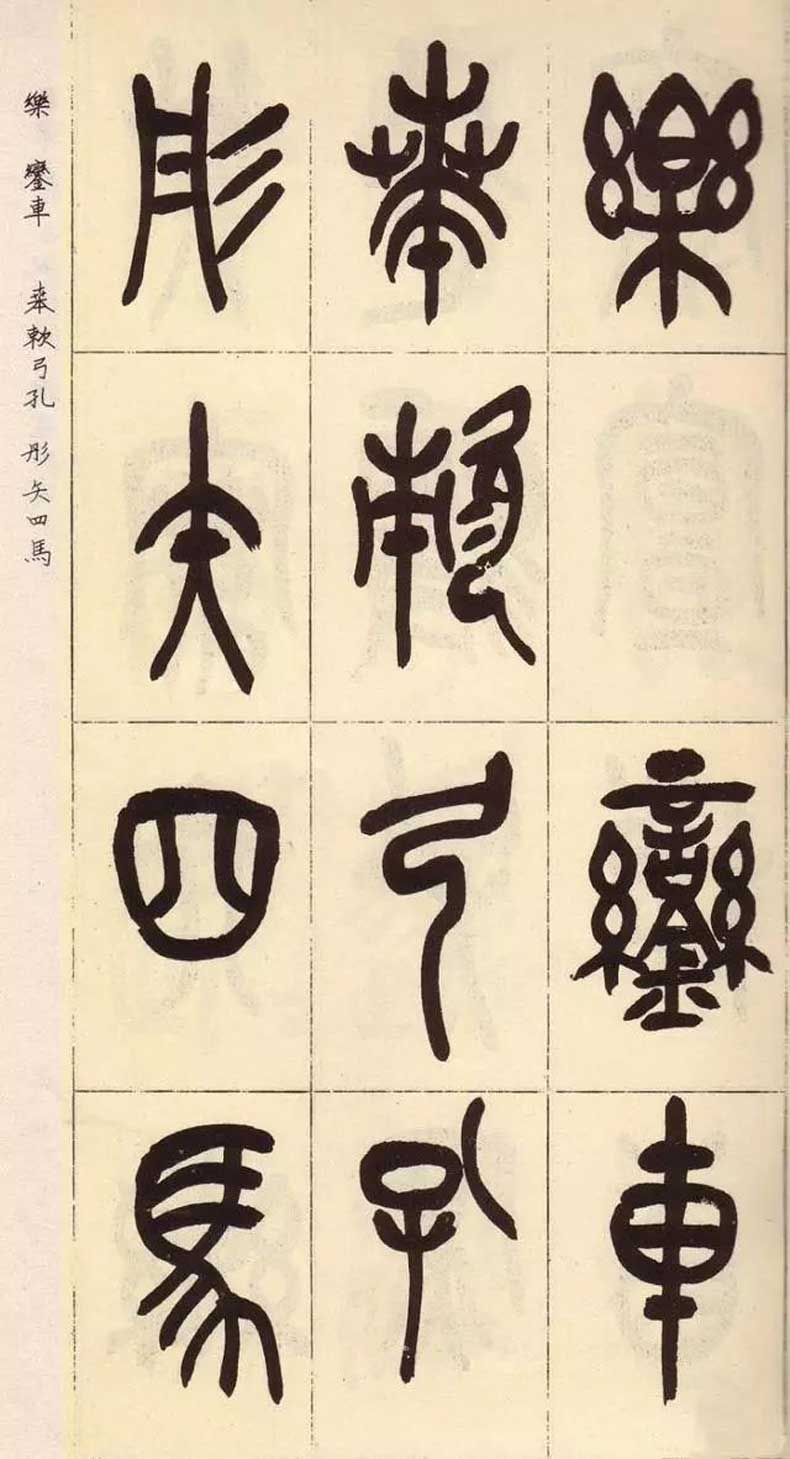 樂 鑾車
𠦪敕弓孔
彤矢四馬
樂 鑾車 𠦪敕弓孔 彤矢四馬